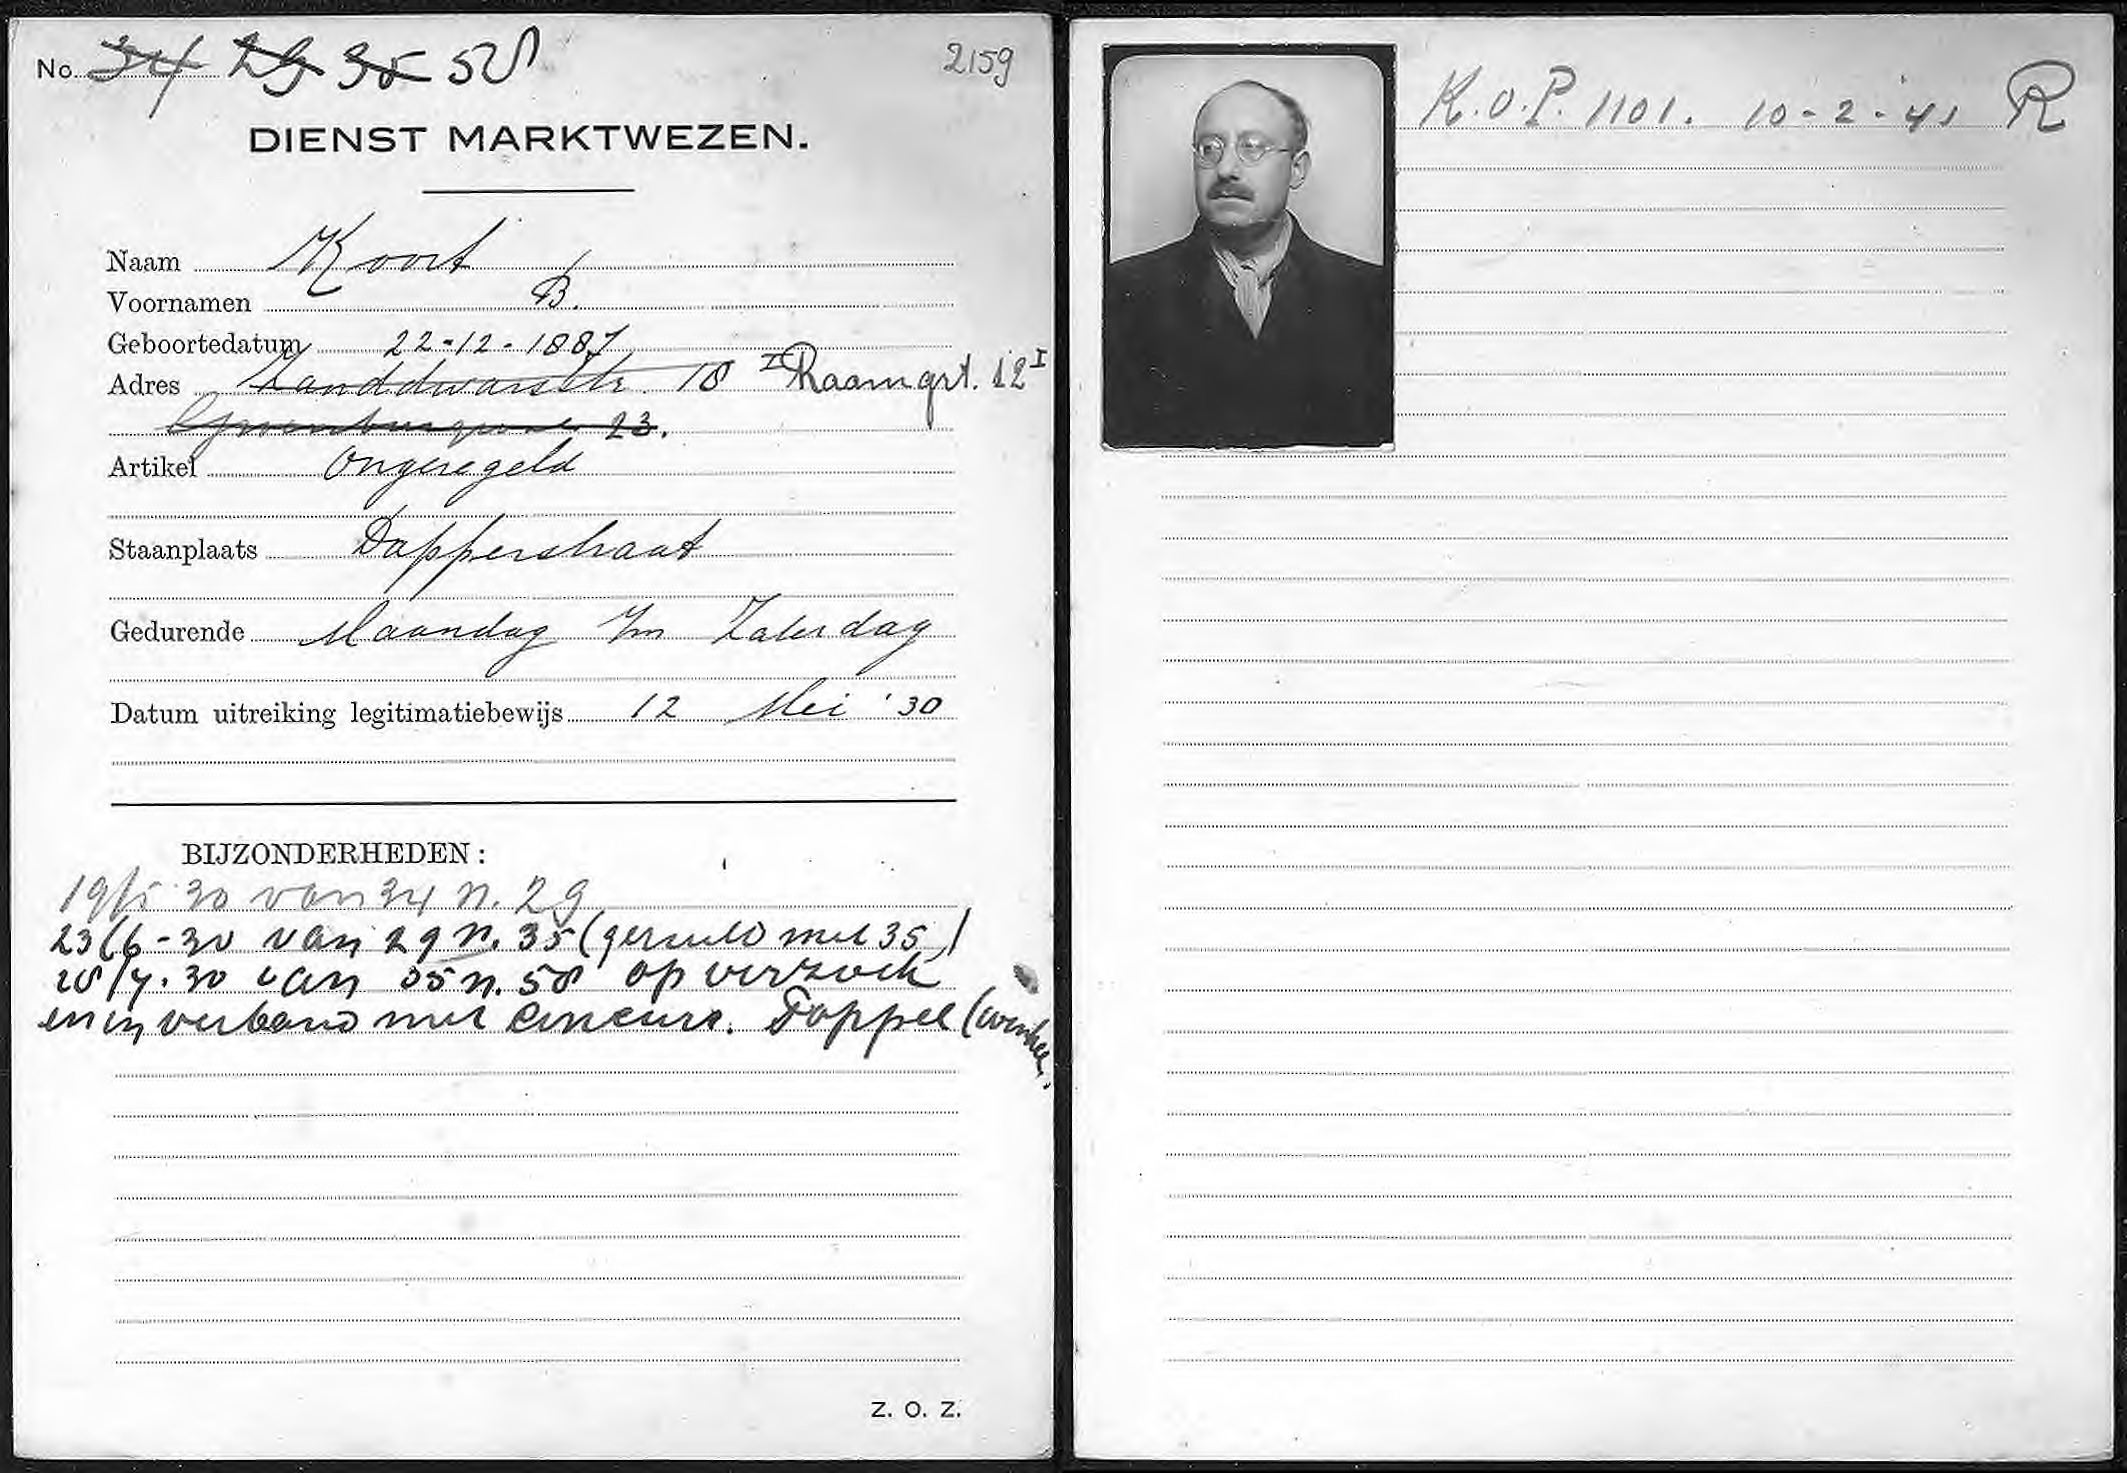 No. 34 29 35 58
2159
DIENST MARKTWEZEN.
Naam Koort
Voornamen B.
Geboortedatum 22-12-1887
Adres Zanddwarsstr. 18 I Raamgrt. 12 I
23.
Artikel Ongeregeld
Staanplaats Dapperstraat
Gedurende Maandag t/m Zaterdag
Datum uitreiking legitimatiebewijs 12 Mei '30
BIJZONDERHEDEN:
19/5 30 van 34 n. 29
23/6-30 van 29 n. 35 (geruild met 35)
28/7.30 van 35 n. 58 op verzoek
en in verband met concurr. Doppel
Z. O. Z.
K.O.P. 1101. 10-2-'41 R